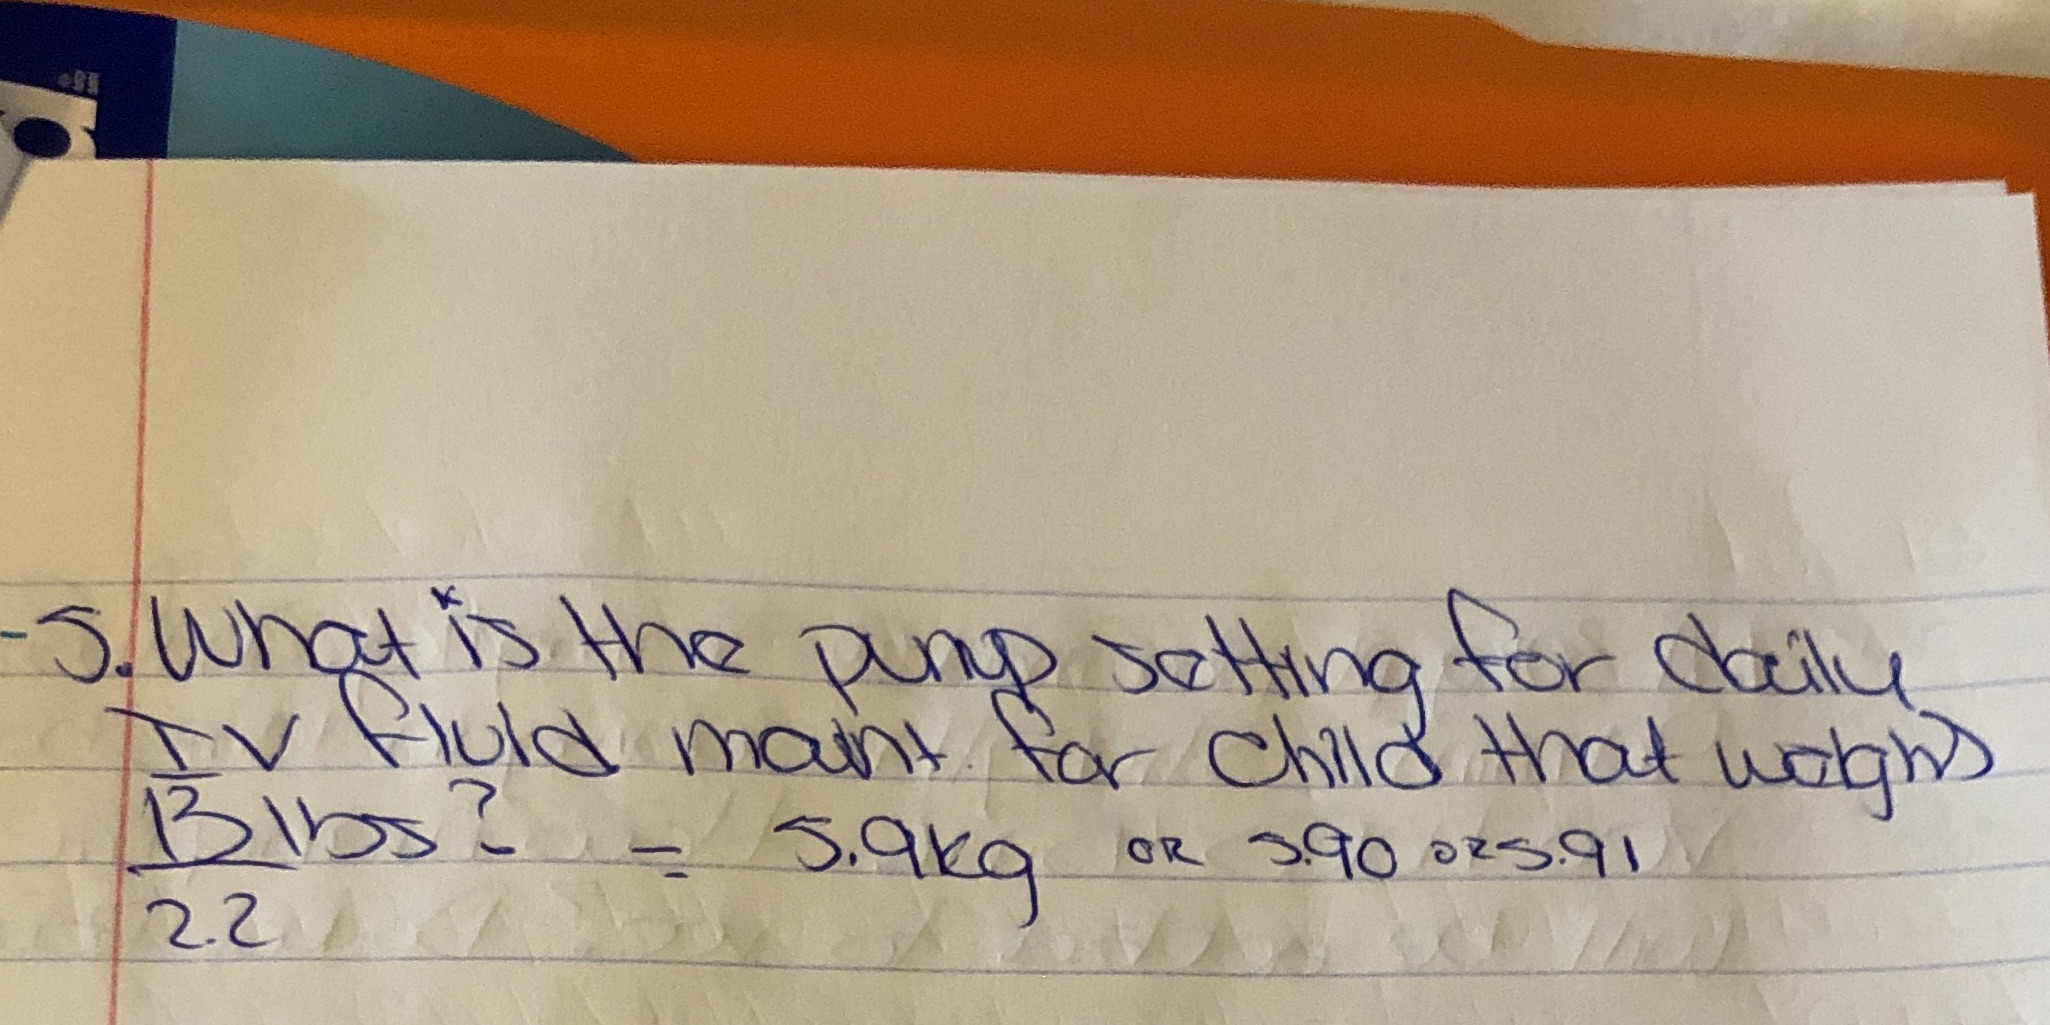 5. What is the pump setting for daily
IV fluid maint. for child that weighs
13 lbs? = 5.9kg OR 5.90 or 5.91
2.2